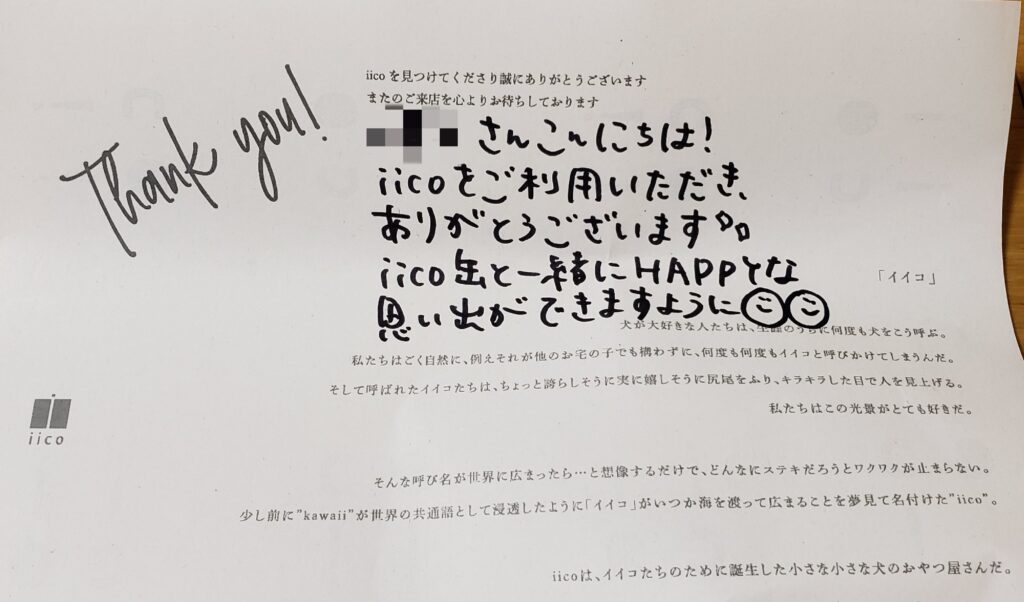 Thank you!
iicoを見つけてくださり誠にありがとうございます
またのご来店を心よりお待ちしております
さんこんにちは!
iicoをご利用いただき、
ありがとうございます
iico缶と一緒にHAPPYな
思い出ができますように
「イイコ」
犬が大好きな人たちは、生涯のうちに何度も犬をこう呼ぶ。
私たちはごく自然に、例えそれが他のお宅の子でも構わずに、何度も何度もイイコと呼びかけてしまうんだ。
そして呼ばれたイイコたちは、ちょっと誇らしそうに実に嬉しそうに尻尾をふり、キラキラした目で人を見上げる。
私たちはこの光景がとても好きだ。
iico
そんな呼び名が世界に広まったら…と想像するだけで、どんなにステキだろうとワクワクが止まらない。
少し前に"kawaii"が世界の共通語として浸透したように「イイコ」がいつか海を渡って広まることを夢見て名付けた"iico"。
iicoは、イイコたちのために誕生した小さな小さな犬のおやつ屋さんだ。